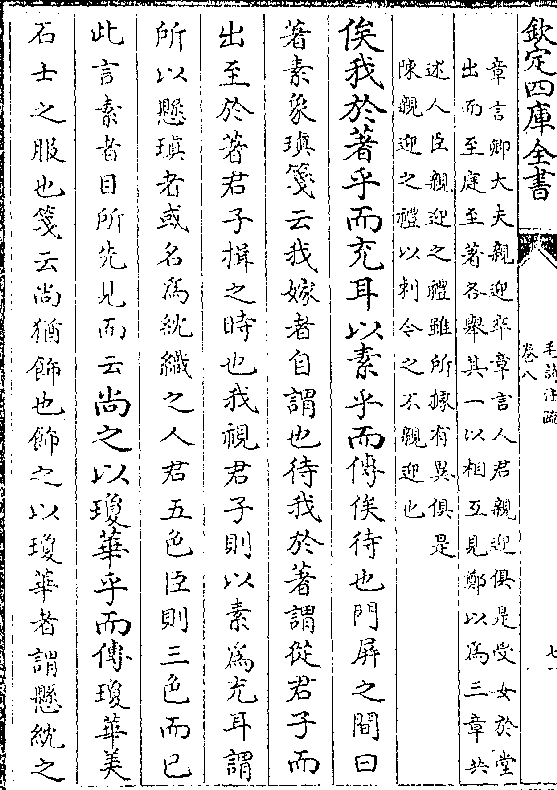 欽定四庫全書
毛詩注疏
卷八
七
章言卿大夫親迎卒章言人君親迎俱是受女於堂
出而至庭至著各舉其一以相互見鄭以為三章共
述人臣親迎之禮雖所據有異俱是
陳親迎之禮以刺今之不親迎也
俟我於著乎而充耳以素乎而傳俟待也門屏之間曰
著素象瑱箋云我嫁者自謂也待我於著謂從君子而
出至於著君子揖之時也我視君子則以素為充耳謂
所以懸瑱者或名為紞織之人君五色臣則三色而已
此言素者目所先見而云尚之以瓊華乎而傳瓊華美
石士之服也箋云尚猶飾也飾之以瓊華者謂懸紞之